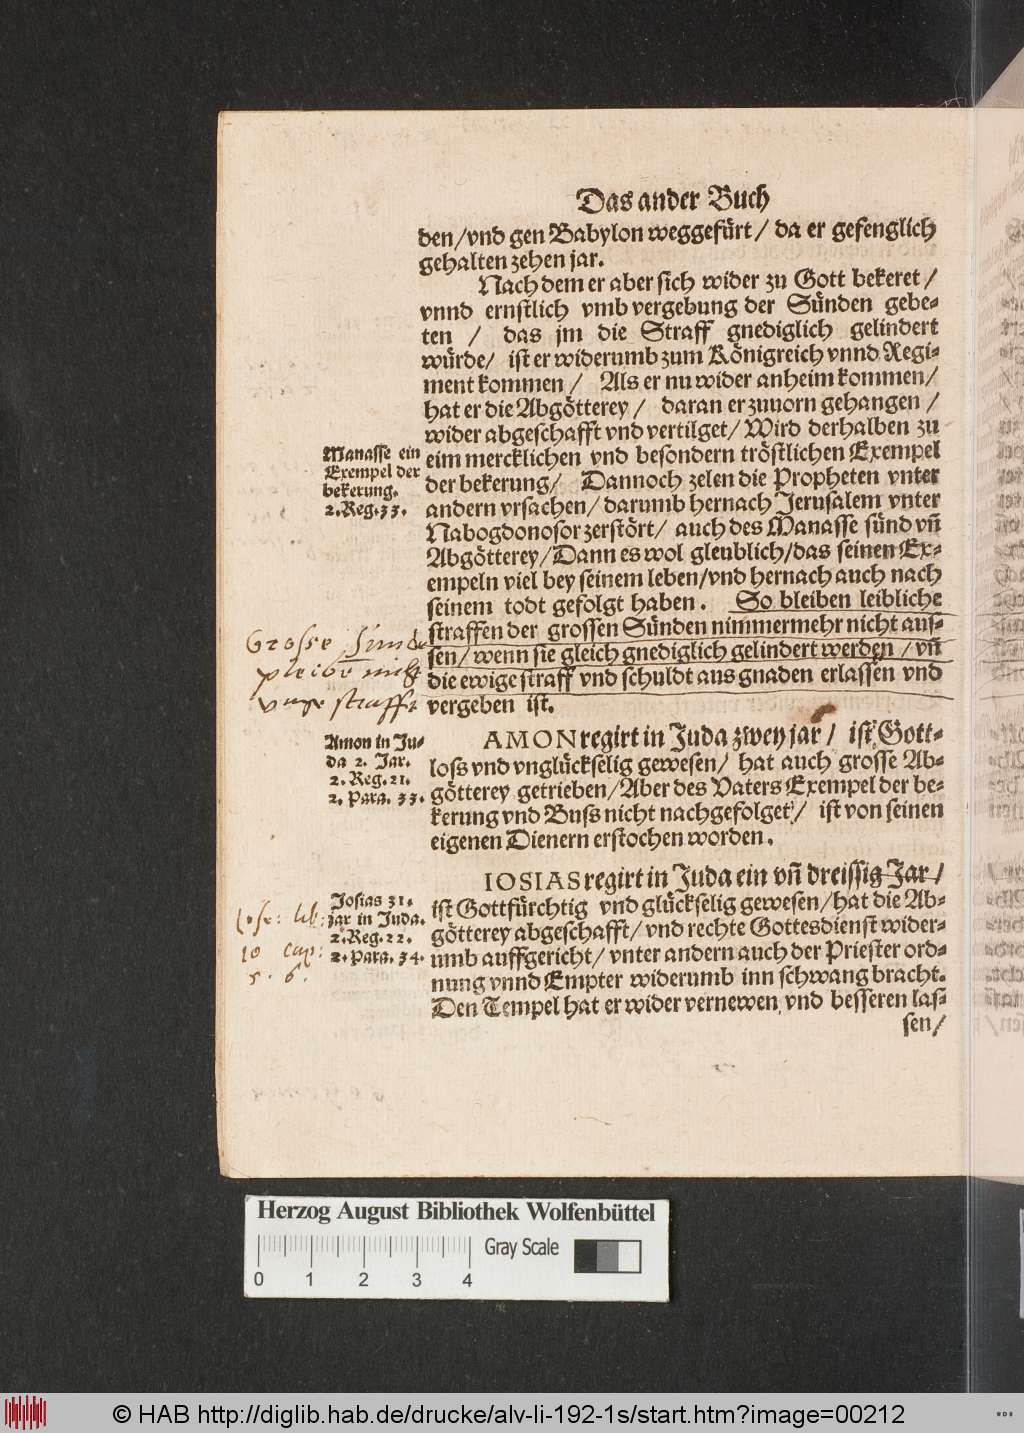 Das ander Buch
den/vnd gen Babylon weggefürt/ da er gefenglich
gehalten zehen jar.
Nach dem er aber sich wider zu Gott bekeret/
vnnd ernstlich vmb vergebung der Sünden gebe-
ten / das jm die Straff gnediglich gelindert
würde/ ist er widerumb zum Königreich vnnd Regi-
ment kommen/ Als er nu wider anheim kommen/
hat er die Abgötterey/ daran er zuuorn gehangen /
wider abgeschafft vnd vertilget/ Wird derhalben zu
eim mercklichen vnd besondern tröstlichen Exempel
der bekerung/ Dannoch zelen die Propheten vnter
andern vrsachen/ darumb hernach Jerusalem vnter
Nabogdonosor zerstört/ auch des Manasse sünd vn̄
Abgötterey/Dann es wol gleublich/das seinen Ex-
empeln viel bey seinem leben/vnd hernach auch nach
seinem todt gefolgt haben. So bleiben leibliche
straffen der grossen Sünden nimmermehr nicht aus-
sen/ wenn sie gleich gnediglich gelindert werden /vn̄
die ewige straff vnd schuldt aus gnaden erlassen vnd
vergeben ist.
Manasse ein
Exempel der
bekerung.
2.Reg.33.
Grosse Sund
pleibē nicht
vnge straffet
AMON regirt in Juda zwey jar/ ist Gott-
loss vnd vnglückselig gewesen/ hat auch grosse Ab-
götterey getrieben/Aber des Vaters Exempel der be-
kerung vnd Buss nicht nachgefolget/ ist von seinen
eigenen Dienern erstochen worden.
Amon in Ju-
da 2. Jar.
2. Reg.21.
2. Para. 33.
IOSIAS regirt in Juda ein vn̄ dreissig Jar/
ist Gottfürchtig vnd glückselig gewesen/hat die Ab-
götterey abgeschafft/ vnd rechte Gottesdienst wider-
umb auffgericht/ vnter andern auch der Priester ord-
nung vnnd Empter widerumb inn schwang bracht.
Den Tempel hat er wider vernewen vnd besseren las-
sen/
Josias 31.
jar in Juda.
2.Reg.22.
2.Para. 34.
Iose: lib:
10 cap:
5. 6.
Herzog August Bibliothek Wolfenbüttel
Gray Scale
0 1 2 3 4
© HAB http://diglib.hab.de/drucke/alv-li-192-1s/start.htm?image=00212